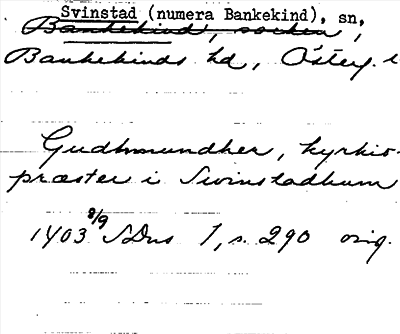 Svinstad (numera Bankekind), sn,
Bankekind, socken,
Bankekinds hd, Österg. l
Gudhmundher, kyrkio-
præster i Swinstadhum
1403 8/9 SDns 1, s. 290 orig.